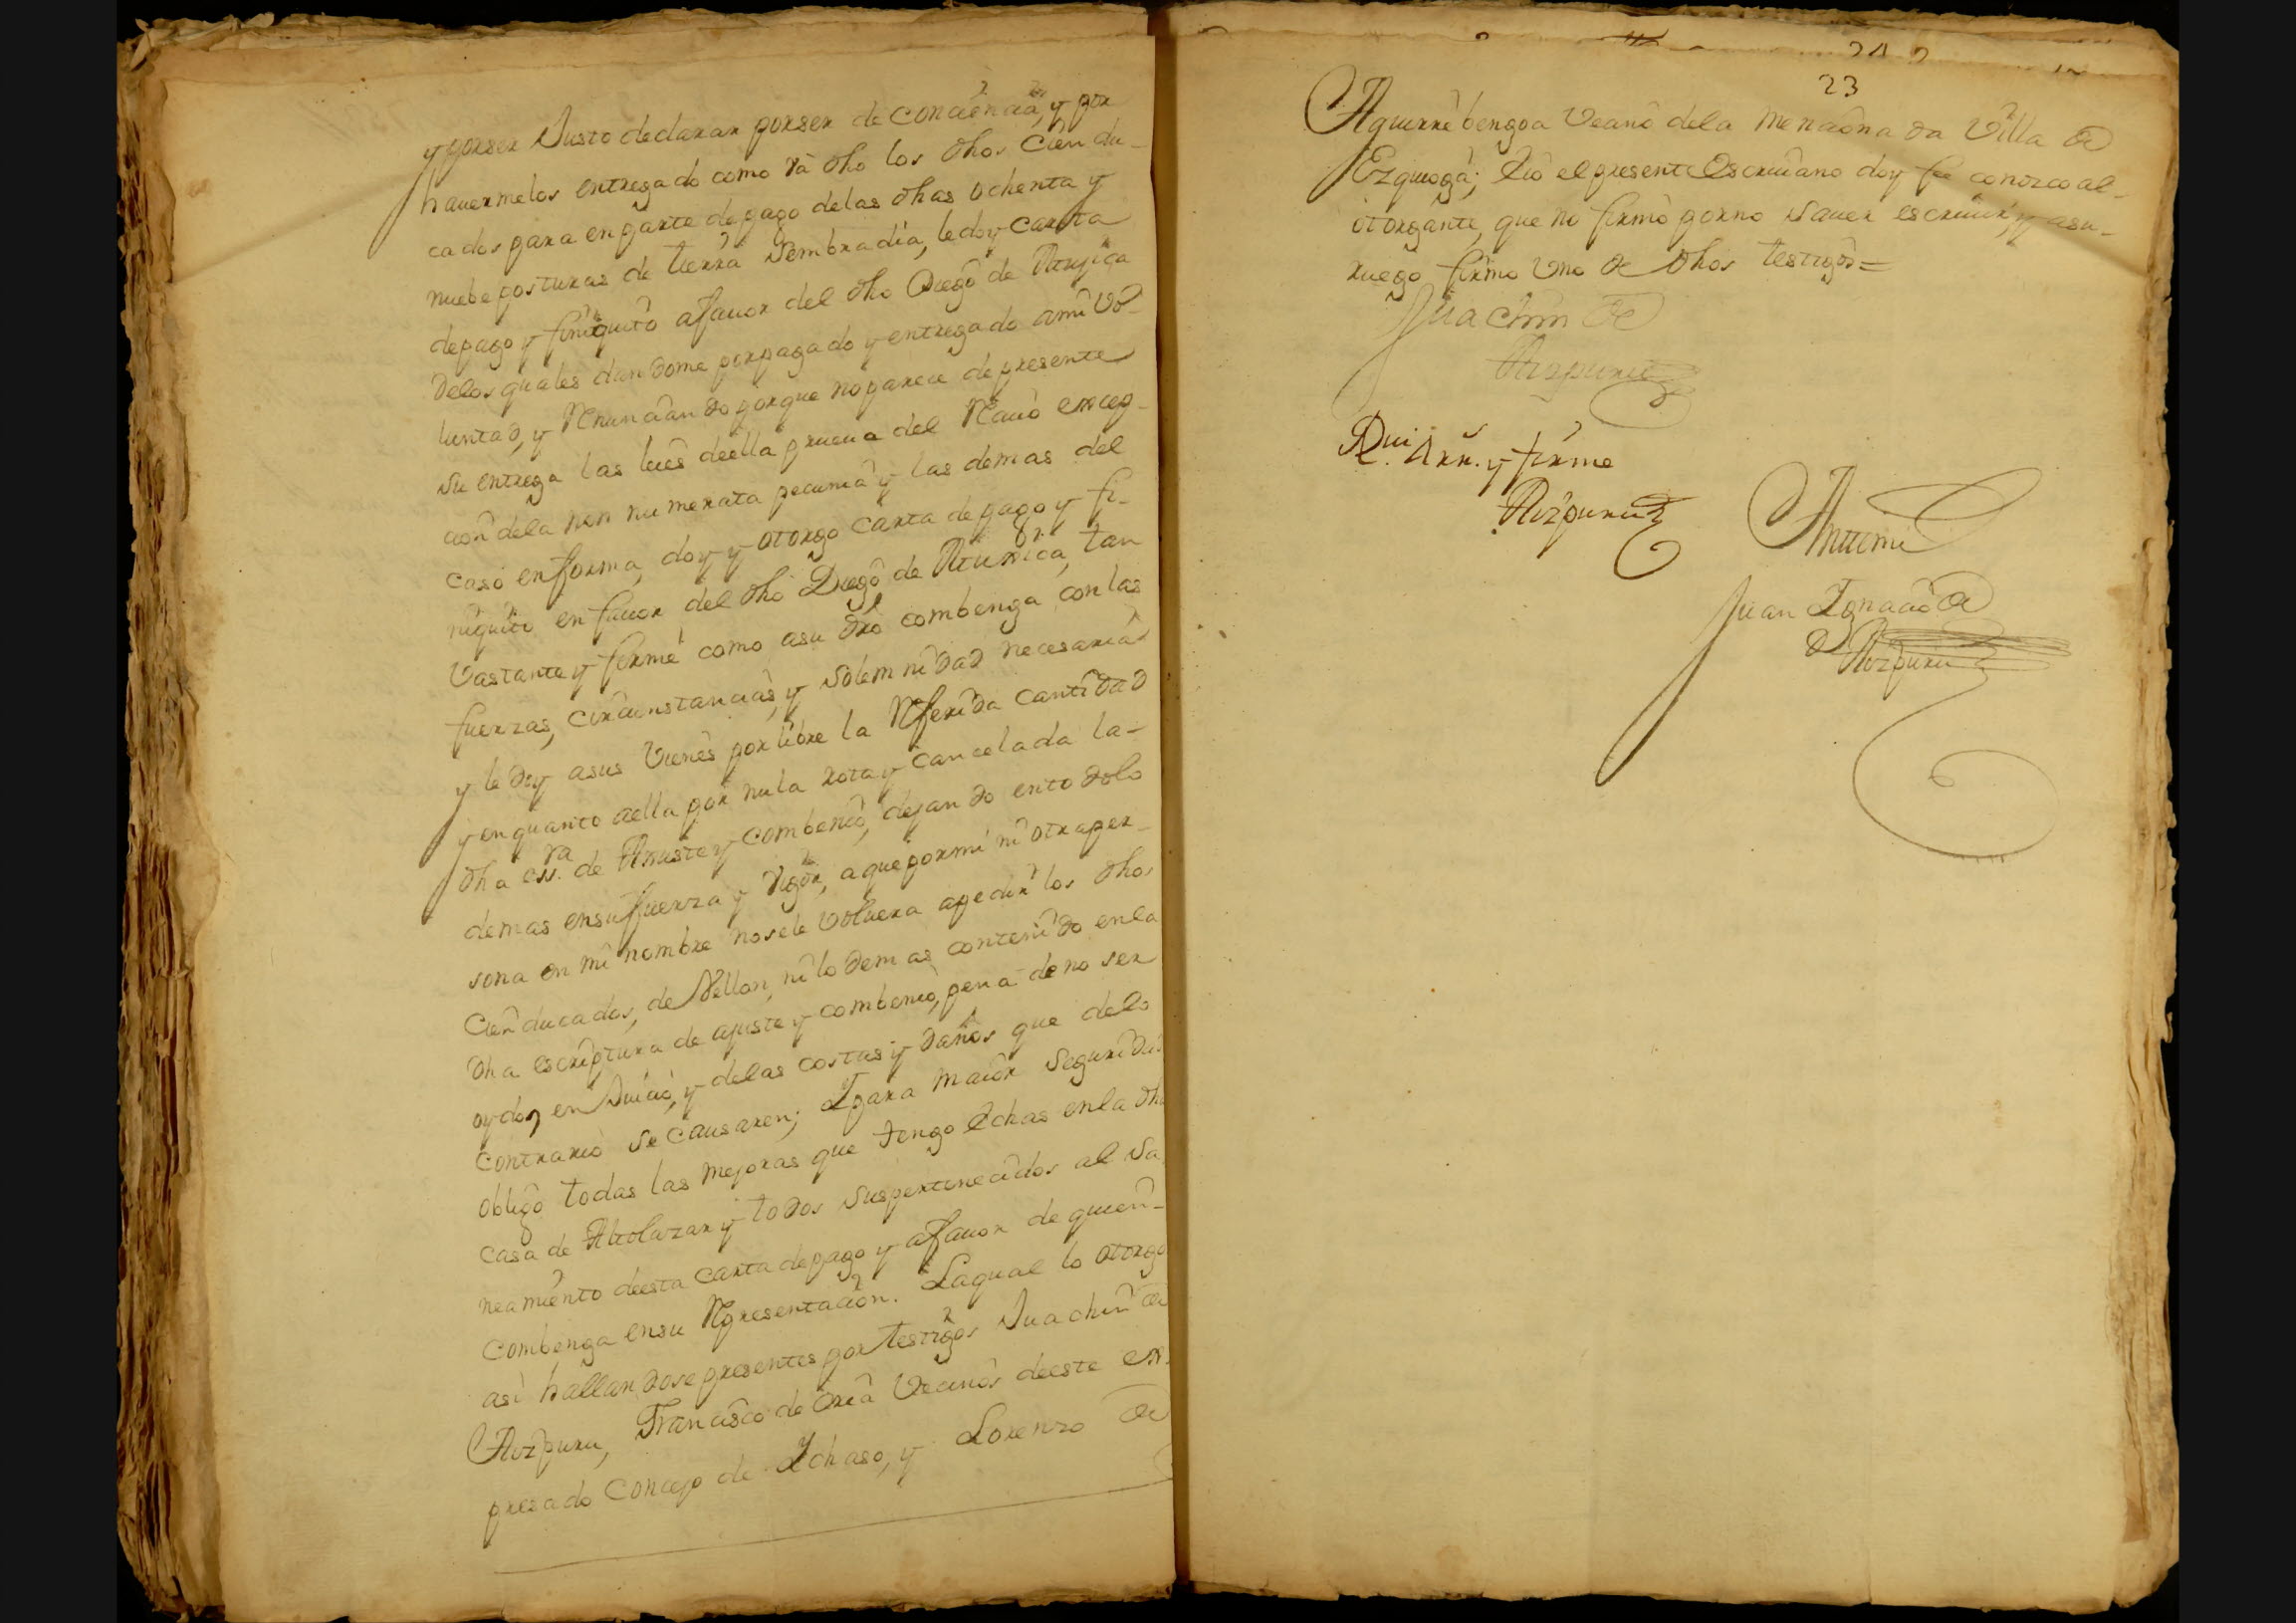 y por ser Justo declarar por ser de conciencia, y por
havermelos entregado como va dho los dhos Cien du-
cados para en parte de pago de las dhas ochenta y
nuebe posturas de tierra Sembradia, le doy Carta
de pago y finiquito a favor del dho Diego de Atujica
de los quales dandome por pagado y entregado a mi vo-
luntad, y Renunciando porque no parece de presente
su entrega las leies de ella prueva del Reciuo excep-
cion de la non numerata pecunia y las demas del
caso en forma, doy y otorgo Carta de pago y fi-
niquito en favor del dho Diego de Atuxica, tan
Vastante y firme como a su dro combenga con las
fuerzas, circunstancias, y solemnidad necesarias
y le doy a sus Vienes por libre la Referida cantidad
y en quanto a ella por nula rota y cancelada la-
dha essra. de Ajuste y combenio, dejando en todo lo
demas en su fuerza y vigor, a que por mi ni otra per-
sona en mi nombre no se le volvera a pedir los dhos
Cien ducados, de Vellon, ni lo demas contenido en la
dha escriptura de ajuste y combenio, pena de no ser
oydos en Juicio, y de las costas y daños que de lo
contrario se causaren; I para maior Seguridad
obligo todas las mejoras que tengo Echas en la dha
casa de Alcolazar y todos sus pertenecidos al Sa
neamiento de esta carta de pago y a favor de quien-
combenga en su Representacion. La qual lo otorgo
asi hallandose presentes por testigos Juachin de
Aizpuru, Francisco de Oria Vecinos de este ex-
presado Concejo de Ichaso, y Lorenzo de
23
Aguirrebengoa Vecino de la Mencionada Villa de
Ezquioga; E io el presente Escriuano doy fe conozco al-
otorgante, que no firmo por no saver escriuir, y a su-
ruego firmo Uno de dhos testigos=
Juachin de
Aizpuru
y firme
Aizpuru
Antemi
Juan Ignacio de
Aizpuru